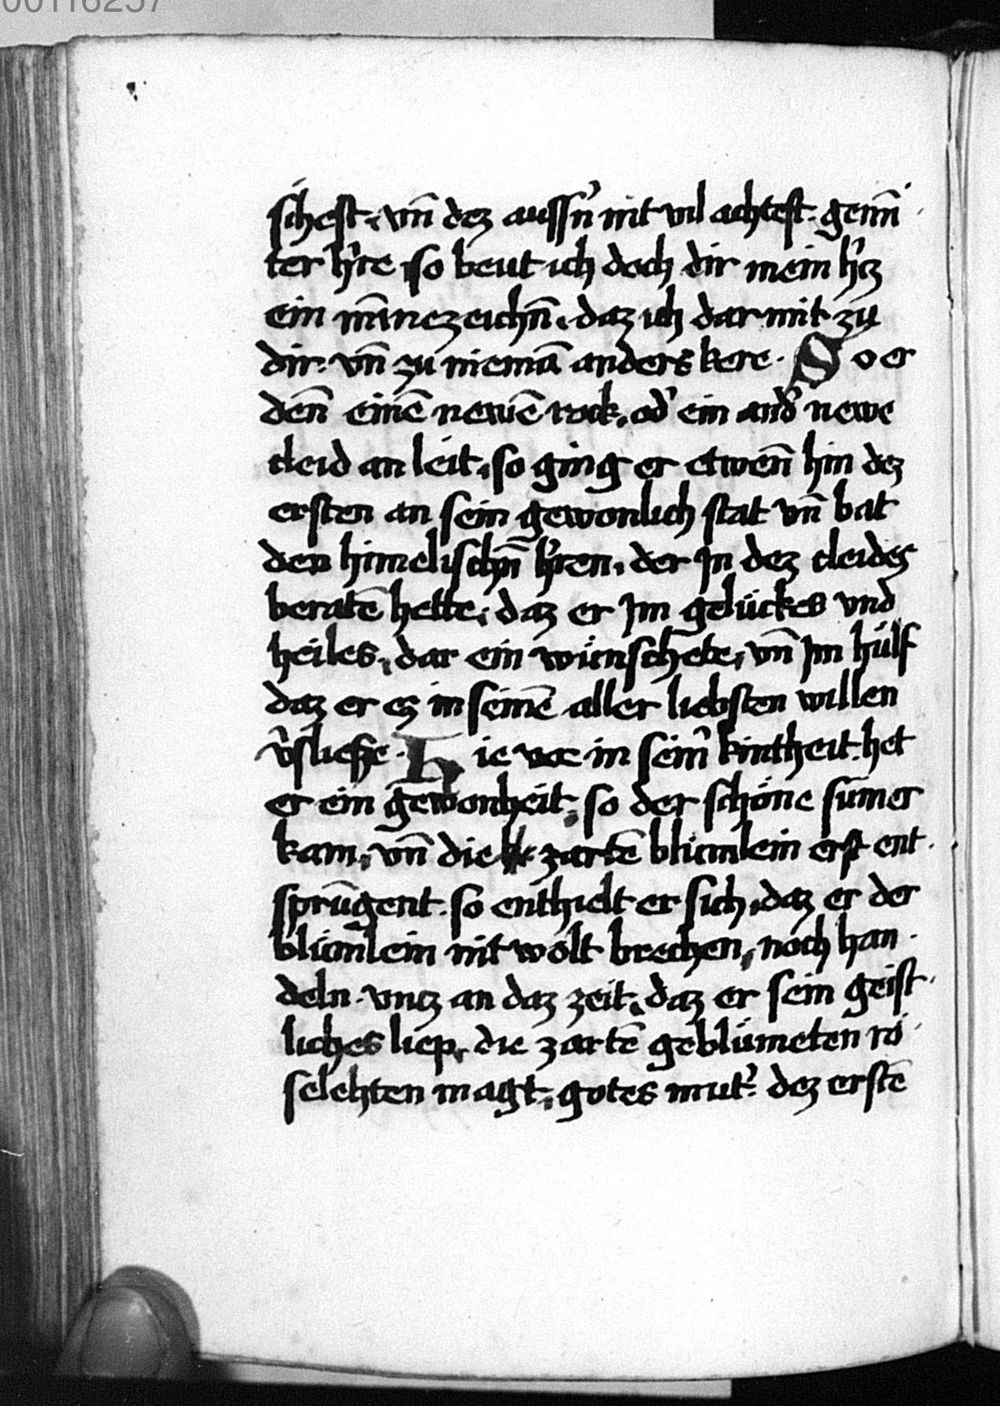 00116257
schest. vn̄ dez aussn̛ nit vil achtest. gemī
ter h̛re so beut ich doch dir mein h̛cz
ein mīnezeichn̄. daz ich dar mit zu
dir. vn̄ zu niemā anders kere. So er
den̄ einē newē rock. od̛ ein and̛ newe
cleid an leit. so ging er etwen̄ hin dez
ersten an sein gewonlich stat vn̄ bat
den himelischn̄ h̛ren. der Jn dez cleides
beratē hette. daz er Jm gelückes vnd
heiles. dar ein wünschete. vn̄ Jm hülf
daz er ez in seinē aller liebsten willen
v̛sließe. Hie vor in sein̛ kintheit. het
er ein gewonheit. so der schöne sumer
kam. vn̄ die zartē blümlein erst ent
sprūgent. so enthielt er sich. daz er der
blümlein nit wolt brechen. noch han
deln. vncz an daz zeit. daz er sein geist
liches liep. die zartē geblümeten rö
selehten magt. gotes mut̛. dez erstē